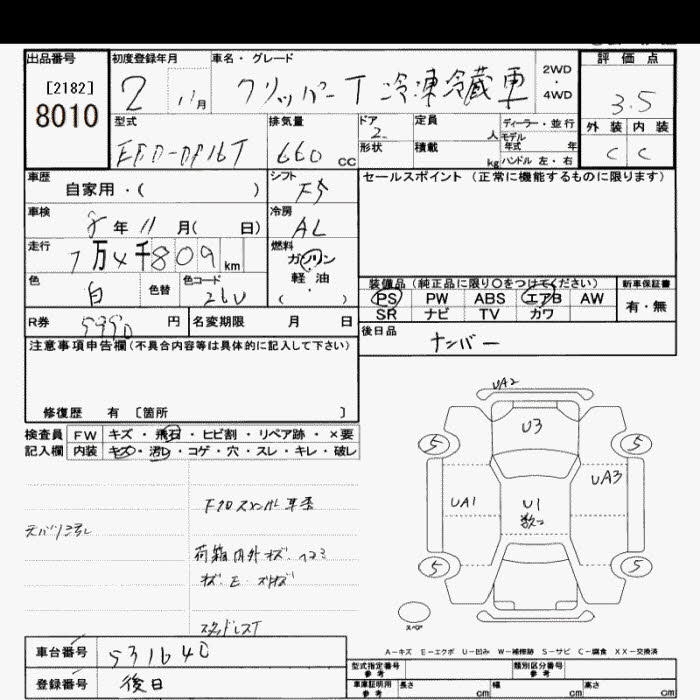 出品番号
[2182]
8010
初度登録年月
2 11月
車名・グレード
クリッパーT 冷凍冷蔵車
2WD
・
4WD
評価点
3.5
外装 内装
C C
型式
EBD-DR16T
排気量
660 CC
ドア
2
形状
定員
人
積載
kg
ディーラー・並行
モデル
年式 年
ハンドル 左・右
車歴
自家用・( )
シフト
F5
車検
8年11月( 日)
冷房
AC
走行
7万4千809km
燃料
ガソリン
軽・油
( )
色
白
色替
色コード
26U
R券
5990円
名変期限 月 日
セールスポイント (正常に機能するものに限ります)
装備品(純正品に限り〇をつけてください)
新車保証書
PS PW ABS エアB AW
有・無
SR ナビ TV カワ
後日品
ナンバー
注意事項申告欄(不具合内容等は具体的に記入して下さい)
修復歴 有 〔箇所 〕
検査員
記入欄
FW キズ・飛石・ヒビ割・リペア跡・×要
内装 キズ・汚レ・コゲ・穴・スレ・キレ・破レ
荷箱内外キズ ヘコミ
スタッドレスT
UA2
U3
5 5
UA1
U1
数コ
UA3
5 5
スペア
A-キズ E-エクボ U-凹み W-補修跡 S-サビ C-腐食 XX-交換済
車台番号
531640
登録番号
後日
型式指定番号
参考
類別区分番号
参考
車庫証明用
参考
長さ cm
幅 cm
高さ cm